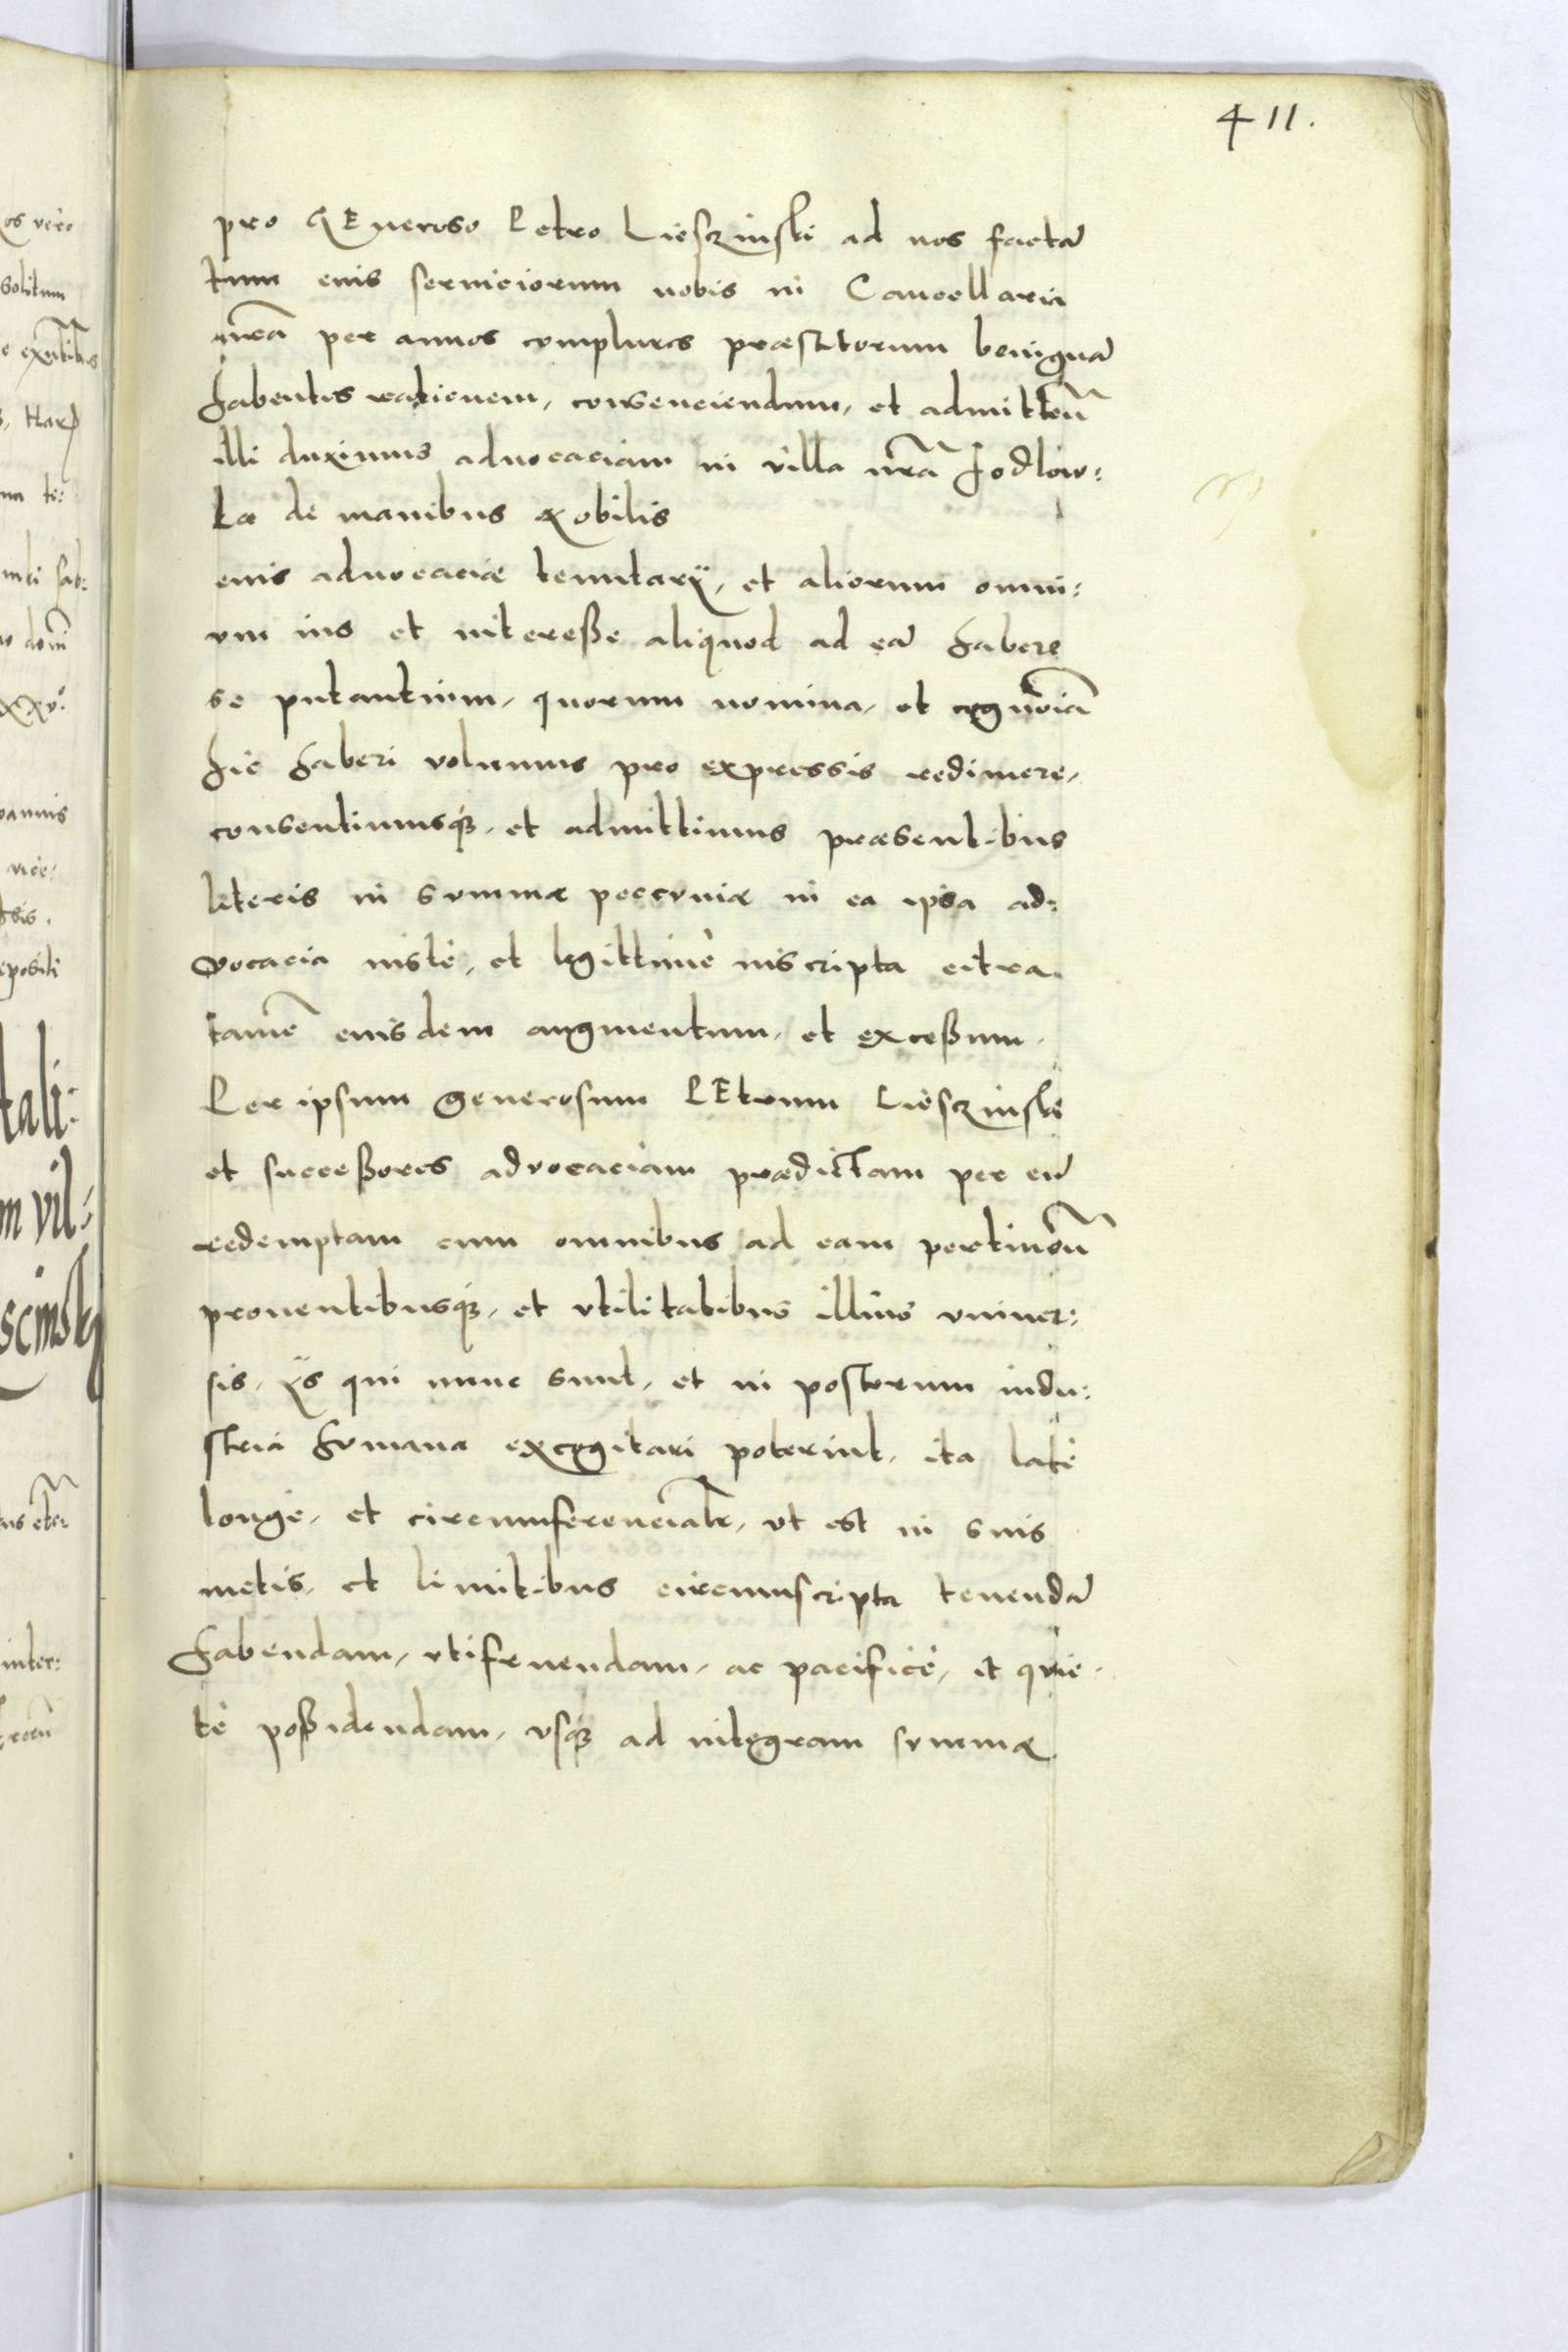 411.
pro GEneroso Petro Liesczinski ad nos factã
tum eius seruiciorum nobis in Cancellaria
nr̃a per annos complures præstitorum benignã
habentes rationem, consenciendum, et admitten̄
illi duximus aduocaciam in villa nr̃a Jodlow:
ka de manibus Nobilis
eius aduocaciæ tenutarÿ, et aliorum omni:
vm ius et intereße aliquod ad eã habere
se putantium, quorum nomina, et cognoĩa
hic haberi volumus pro expressis redimere,
consentimusqꝫ, et admittimus præsentibus
literis in summæ peccuniæ in ea ipsa ad:
vocacia iustè, et legittimè inscripta citra
tamẽ eiusdem augmentum, et exceßum.
Per ipsum generosum PEtrum Liesczinski
et succeßores advocaciam prædictam per eũ
redemptam cum omnibus ad eam pertinen̄
prouentibusqꝫ, et vtilitatibus illius vniuer:
sis, ÿs qui nunc sunt, et in posterum indu:
stria humana excogitari poterint, ita latè
longè, et circumferencialr̃, vt est in suis
metis, et limitibus circumscripta tenendã
habendam, vtifruendam, ac pacificè, et quie
tè poßidendam, vsqꝫ ad integram summæ
os vero
solitum
scinsky